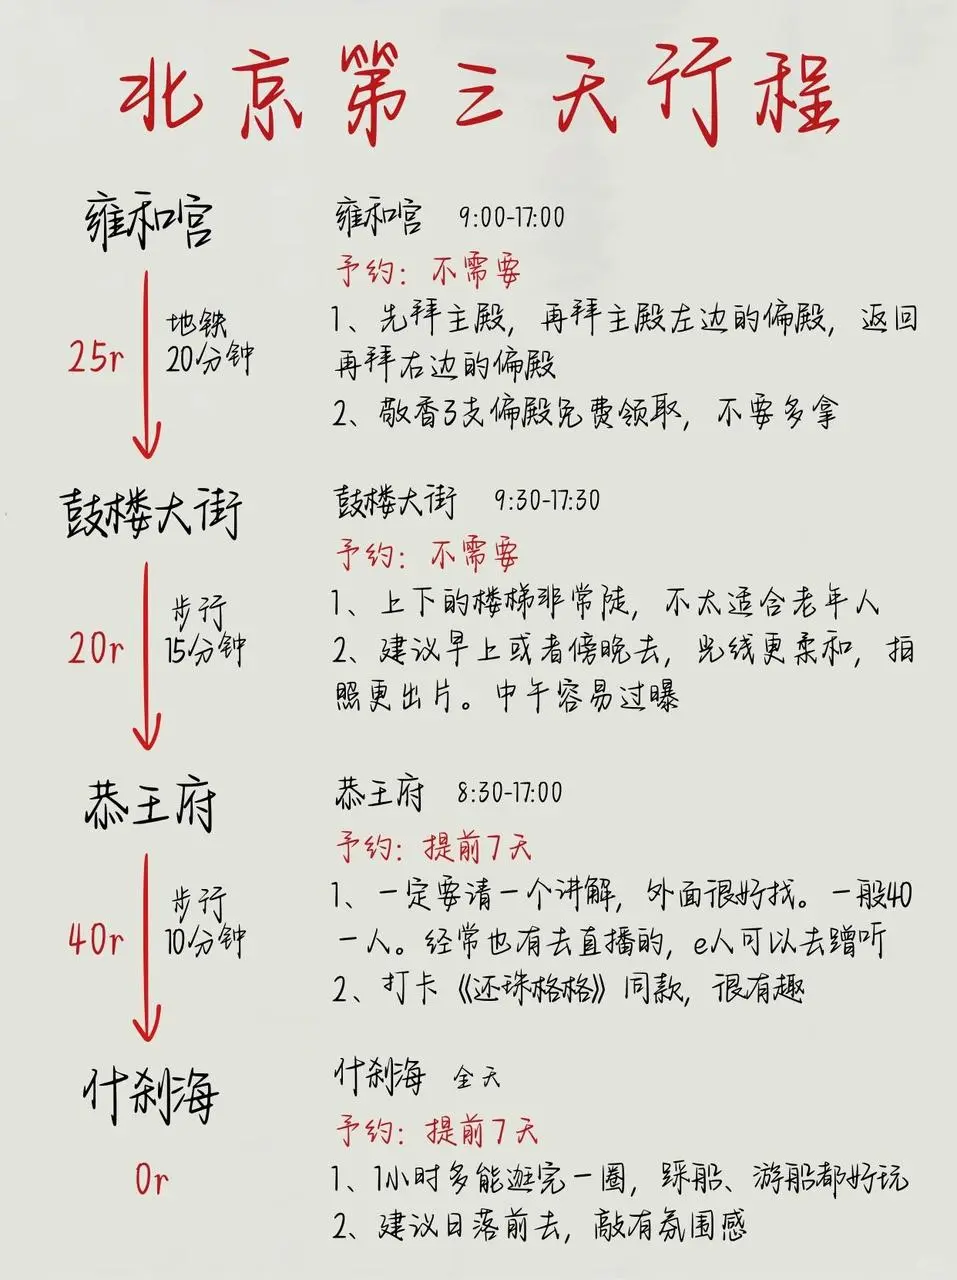 北京第三天行程
雍和宫
25r
地铁
20分钟
雍和宫 9:00-17:00
予约：不需要
1、先拜主殿，再拜主殿左边的偏殿，返回
再拜右边的偏殿
2、敬香3支偏殿免费领取，不要多拿
鼓楼大街
20r
步行
15分钟
鼓楼大街 9:30-17:30
予约：不需要
1、上下的楼梯非常陡，不太适合老年人
2、建议早上或者傍晚去，光线更柔和，拍
照更出片。中午容易过曝
恭王府
40r
步行
10分钟
恭王府 8:30-17:00
予约：提前7天
1、一定要请一个讲解，外面很好找。一般40
一人。经常也有去直播的，e人可以去蹭听
2、打卡《还珠格格》同款，很有趣
什刹海
0r
什刹海 全天
予约：提前7天
1、1小时多能逛完一圈，踩船、游船都好玩
2、建议日落前去，敲有氛围感